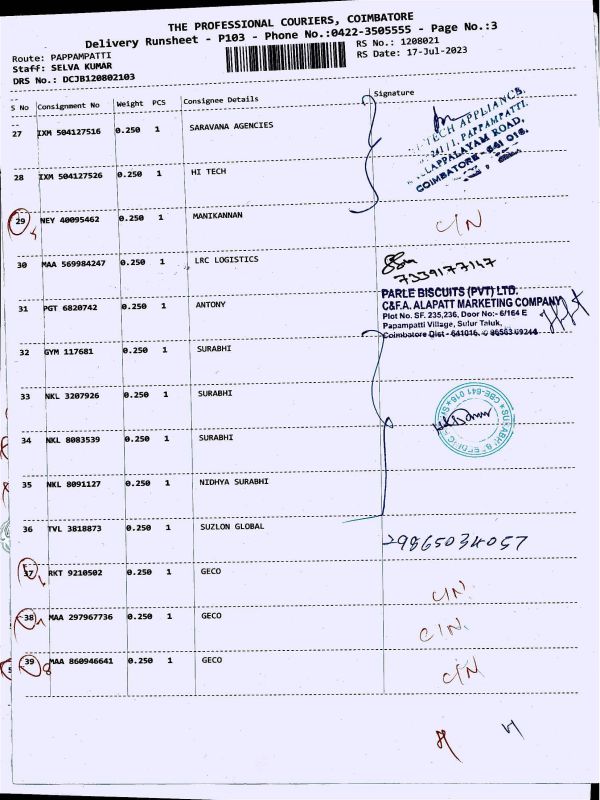 THE PROFESSIONAL COURIERS, COIMBATORE
Delivery Runsheet - P103 - Phone No.:0422-3505555 - Page No.:3
Route: PAPPAMPATTI
RS No.: 1208021
Staff: SELVA KUMAR
RS Date: 17-Jul-2023
DRS No.: DCJB120802103
S No Consignment No Weight PCS Consignee Details Signature
27 IXM 504127516 0.250 1 SARAVANA AGENCIES
HI-TECH APPLIANCE,
PAPPAMPATTI,
COIMBATORE - 641 016.
28 IXM 504127526 0.250 1 HI TECH
29 NEY 40095462 0.250 1 MANIKANNAN C/N
30 MAA 569984247 0.250 1 LRC LOGISTICS
7339177147
31 PGT 6820742 0.250 1 ANTONY
PARLE BISCUITS (PVT) LTD.
C&F.A. ALAPATT MARKETING COMPANY
Plot No. SF. 235,236, Door No:- 6/164 E
Papampatti Village, Sulur Taluk,
Coimbatore Dist - 641016.
32 GYM 117681 0.250 1 SURABHI
33 NKL 3207926 0.250 1 SURABHI
34 NKL 8083539 0.250 1 SURABHI
35 NKL 8091127 0.250 1 NIDHYA SURABHI
36 TVL 3818873 0.250 1 SUZLON GLOBAL
29865034057
37 RKT 9210502 0.250 1 GECO C/N
38 MAA 297967736 0.250 1 GECO C/N
39 MAA 860946641 0.250 1 GECO C/N